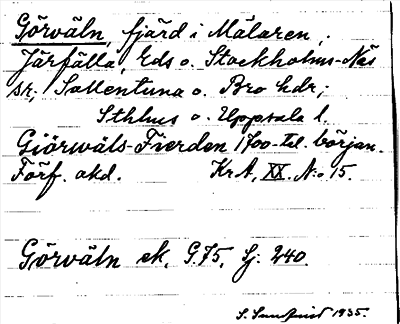 Görväln, fjärd i Mälaren,
Järfälla, Eds o. Stockholms-Näs
sr; Sollentuna o. Bro hdr;
Sthlms o. Uppsala l.
Giörwäls-Fierden 1700-tal. början.
Förf. okd. KrA, XX. No 15.
Görväln ek, G.75, Sj. 240.
S. 1935.